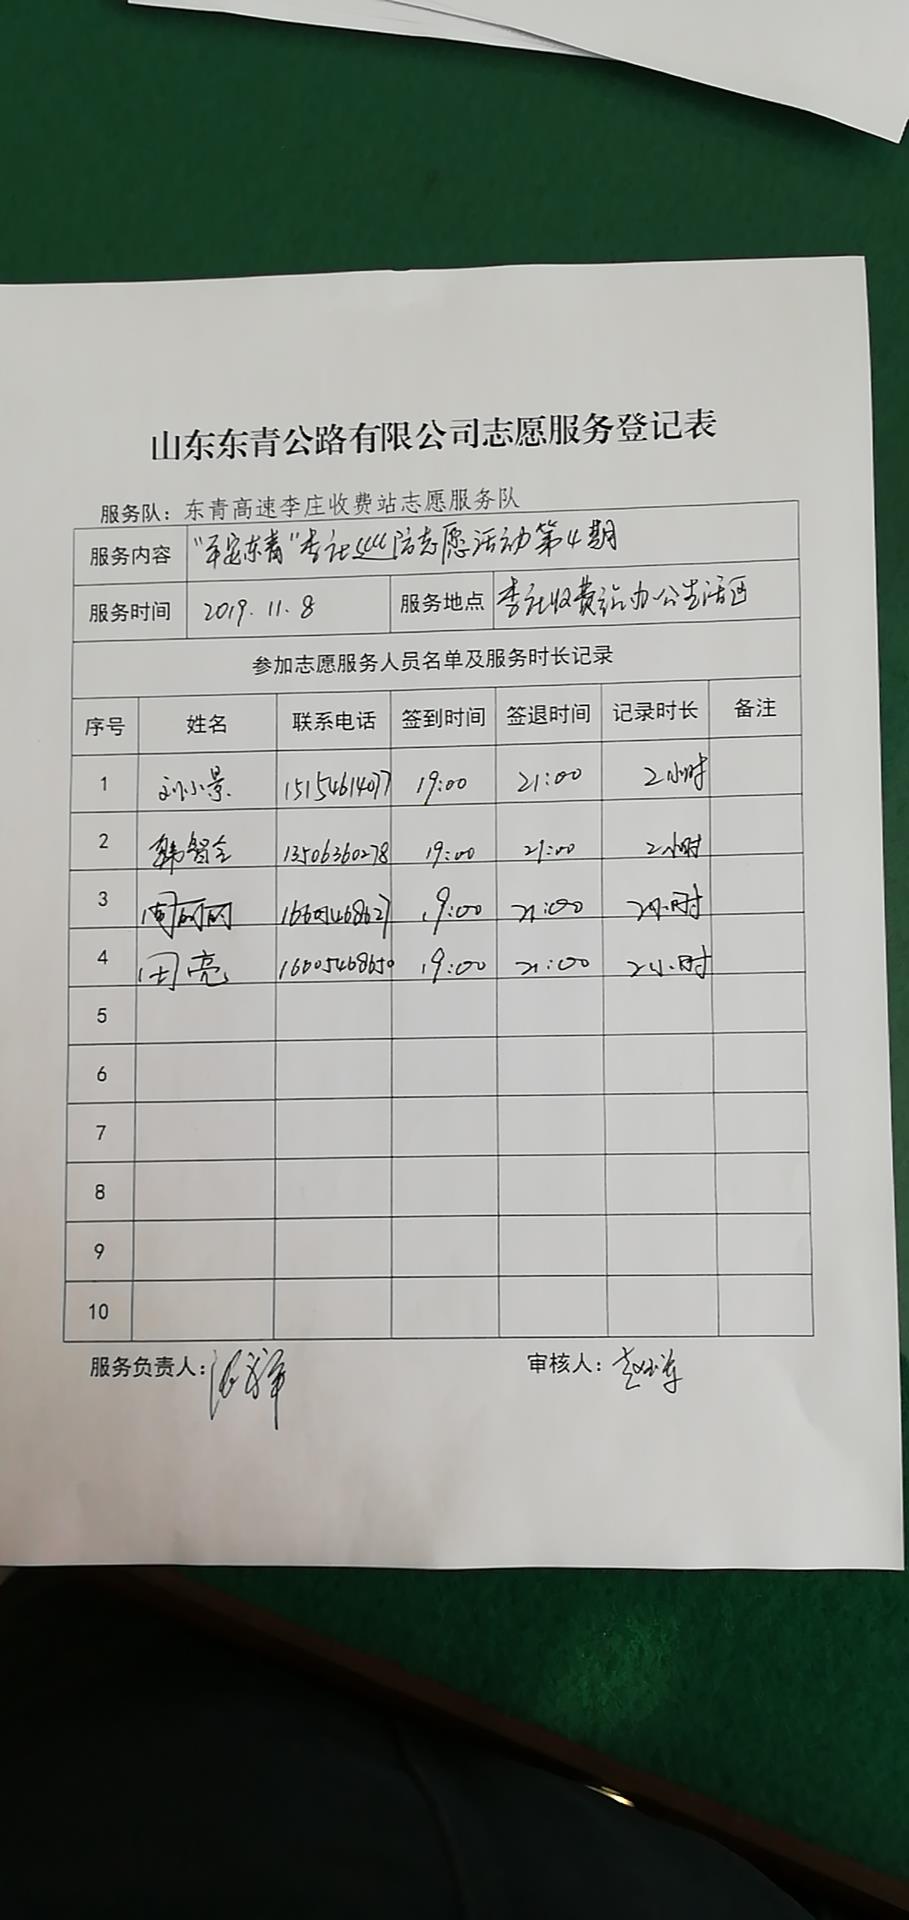 山东东青公路有限公司志愿服务登记表
服务队：东青高速李庄收费站志愿服务队
服务内容 “平安东青”李庄巡防志愿活动第4期
服务时间 2019.11.8 服务地点 李庄收费站办公生活区
参加志愿服务人员名单及服务时长记录
序号 姓名 联系电话 签到时间 签退时间 记录时长 备注
1 刘小景 15154614077 19:00 21:00 2小时
2 韩智全 13506360278 19:00 21:00 2小时
3 周丽丽 16605468627 19:00 21:00 2小时
4 田亮 16605468650 19:00 21:00 2小时
5
6
7
8
9
10
服务负责人： 审核人：